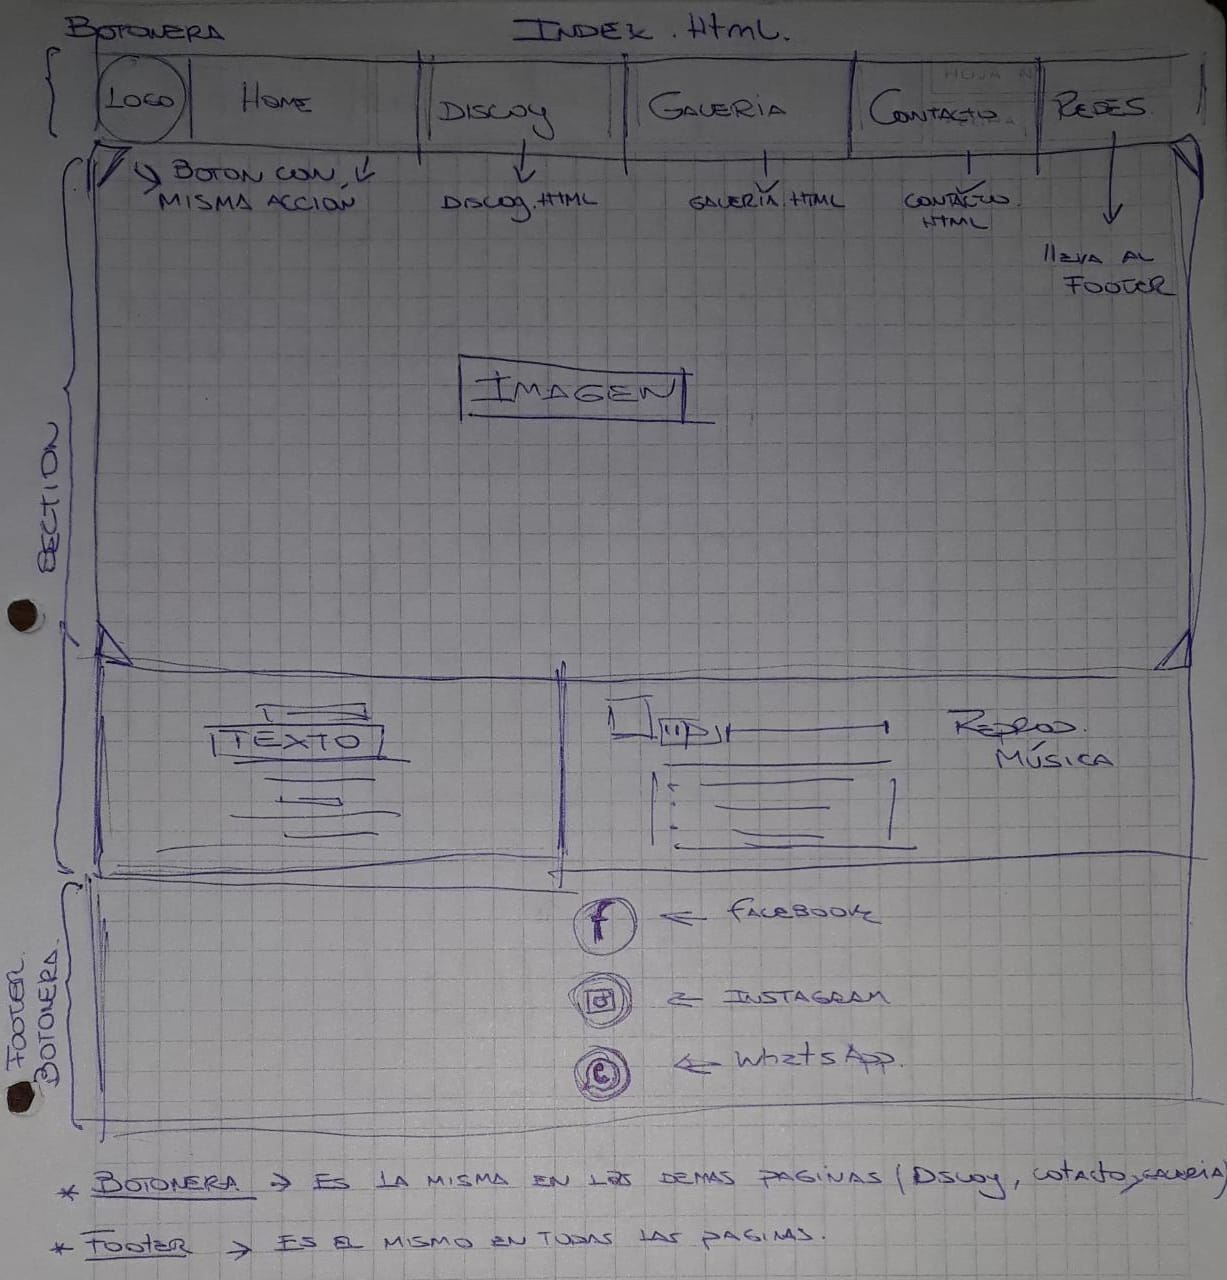 BOTONERA
INDEX.HTML.
LOGO
HOME
DISCOG
GALERIA
CONTACTO
REDES
HOJA N
BOTON CON
MISMA ACCION
DISCOG.HTML
GALERÍA.HTML
CONTACTO.
HTML
llEVA AL
FOOTER
IMAGEN
SECTION
TEXTO
REPROD.
MÚSICA
f
FACEBOOK
INSTAGRAM
WhatsApp.
FOOTER.
BOTONERA.
* BOTONERA → ES LA MISMA EN LOS DEMAS PAGINAS (Dscog, cotacto, GALERIA)
* Footer → ES EL MISMO EN TODAS LAS PAGINAS.